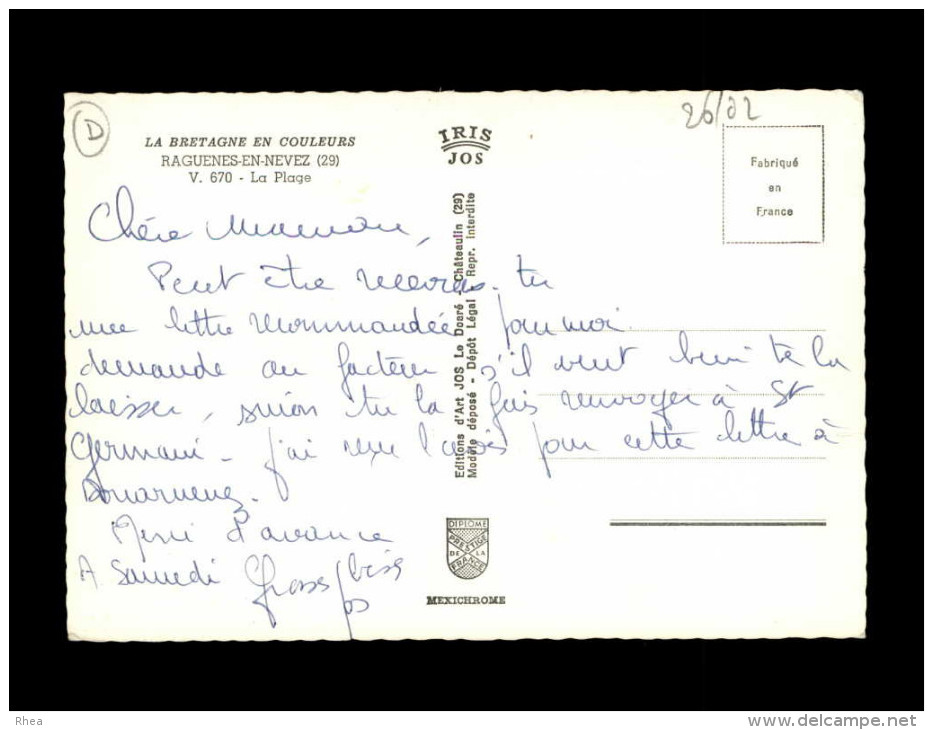 D
26/02
LA BRETAGNE EN COULEURS
RAGUENES-EN-NEVEZ (29)
V. 670 - La Plage
IRIS
JOS
Fabriqué
en
France
Editions d'Art JOS Le Doaré - Châteaulin (29)
Modèle déposé - Dépôt Légal - Repr. Interdite
Chère Maman,
Peut être recevras-tu
une lettre recommandée pour moi.
demande au facteur s'il veut bien te la
laisser, sinon tu la fais renvoyer à St
Germain - j'ai reçu l'avis pour cette lettre à
Douarnenez.
Merci d'avance
A Samedi Grosses bises
DIPLOME
PRESTIGE
DE LA
FRANCE
MEXICHROME
Rhea
www.delcampe.net